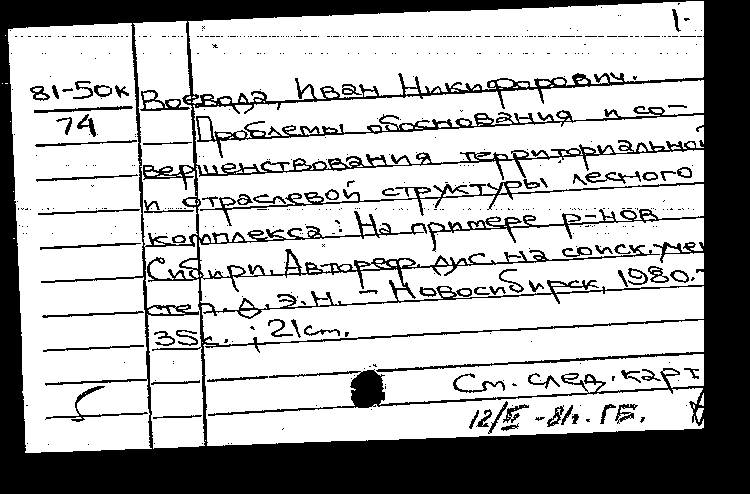 1-
81-50к Воевода, Иван Никифорович.
74 Проблемы обоснования и со-
вершенствования территориальной
и отраслевой структуры лесного
комплекса: На примере р-нов
Сибири. Автореф. дис. на соиск. учен
степ. д.э.н. – Новосибирск, 1980.-
35с. ; 21см.
См. след. карт
12/ -81г. ГБ.